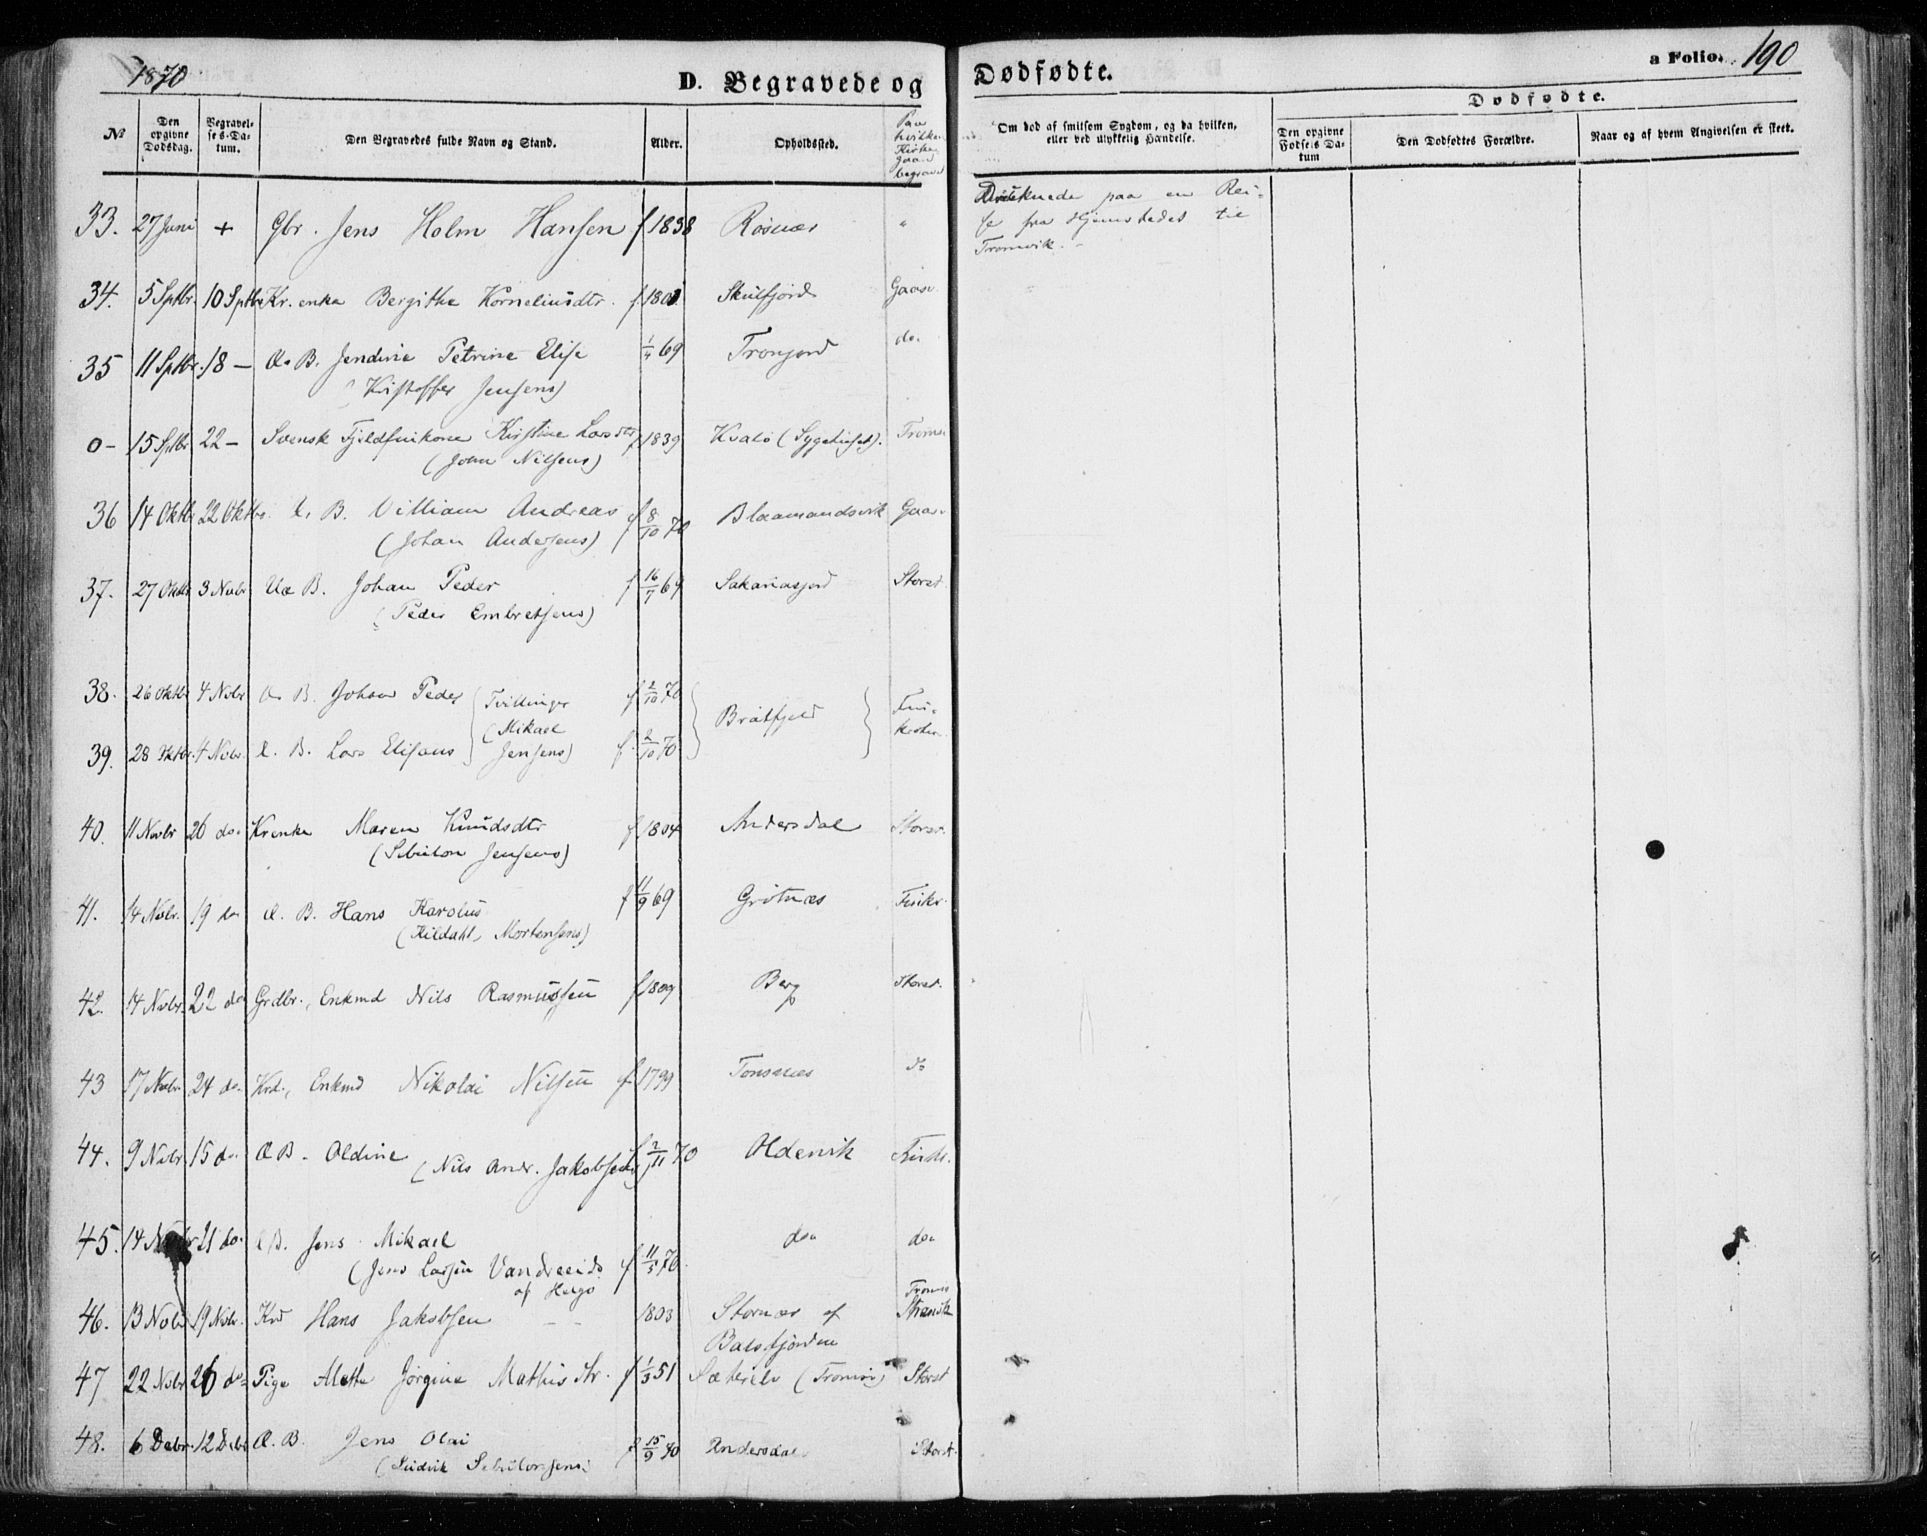 1870 D. Begravede og Dødfødte. a Folio. 190
Dødfødte.
№ Den opgivne Dødsdag. Begravelses-Datum. Den Begravedes fulde Navn og Stand. Alder. Opholdssted. Paa hvilken Kirkegaard begravet Om død af smitsom Sygdom, og da hvilken, eller ved ulykkelig Hændelse. Den opgivne Fødsels Datum Den Dødfødtes Forældre. Naar og af hvem Angivelsen er skeet.
33. 27 Juni + Gbr. Jens Holm Hansen f 1838 Rösnær " Druknede paa en Rei-
se fra Hjemstedet til
Tromvik.
34. 5 Sptbr. 10 Sptbr Kr. enke Bergithe Korneliusdtr. f. Skulfjord Gaasv.
35 11 Sptbr. 18 — B. Jendine Petrine Elise 69 Tronjord do.
(Kristoffer Jensens)
0- 15 Sptbr 22 — Svensk Fjeldfinkone Kirstine Larsdtr f 1839 Kvalö (Sygehuset). Troms
(John Nilsens)
36 14 Oktbr 22 Oktbr. B. Villiam Andreas f 8/10 70 Blaamandsvik Gaas
(Johan Andersens)
37. 27 Oktbr 3 Novbr Ue B. Johan Peder f 16/7 69 Sakariasjord Storst.
(Peder Embretsens)
38. 26 Oktbr 4 Novbr. B. Johan Peder Tvillinger f 2/10 70
(Mikael Bratfjeld Finkroken
39. 28 Oktbr. 4 Novbr. B. Lars Elisæus Jensens) f. 2/10 70
40. 11 Novbr 26 do. Kr enke Maren Knudsdtr f 1804 Andersdal Storst.
(Sebulon Jensens)
41. 14 Novbr. 19 do B. Hans Karolus f 11/9 69 Grötnæs Finkr.
(Kildahl Mortensens)
42. 14 Novbr. 22 do Grdbr., Enkmd Nils Rasmussen f 1809 Berg Storst.
43 17 Novbr 24 do. Krd., Enkmd Nikolai Nilsen f 1799 Tonsnæs do
44. 9 Novbr 15 do B. Oldine f 2/11 70 Oldervik Finkr.
(Nils Andr. Jakobsens)
45. 14 Novbr 21 do. B. Jens Mikael f 11/5 70. do. do.
(Jens Larsen Vandreeid
af Helgö
46. 13 Novbr 19 Novbr. Krd Hans Jakobsen 1803 Stornæs af Troms
Balsfjorden
47 22 Novbr 26 do Pige Alette Jörgine Mathisdtr. f 1/3 51 Sæterelv (Tromsö) Storst
48. 6 Debr. 12 Debr B. Jens Olai f 15/9 Andersdal Storst.
(Ludvik Sebulonsens)